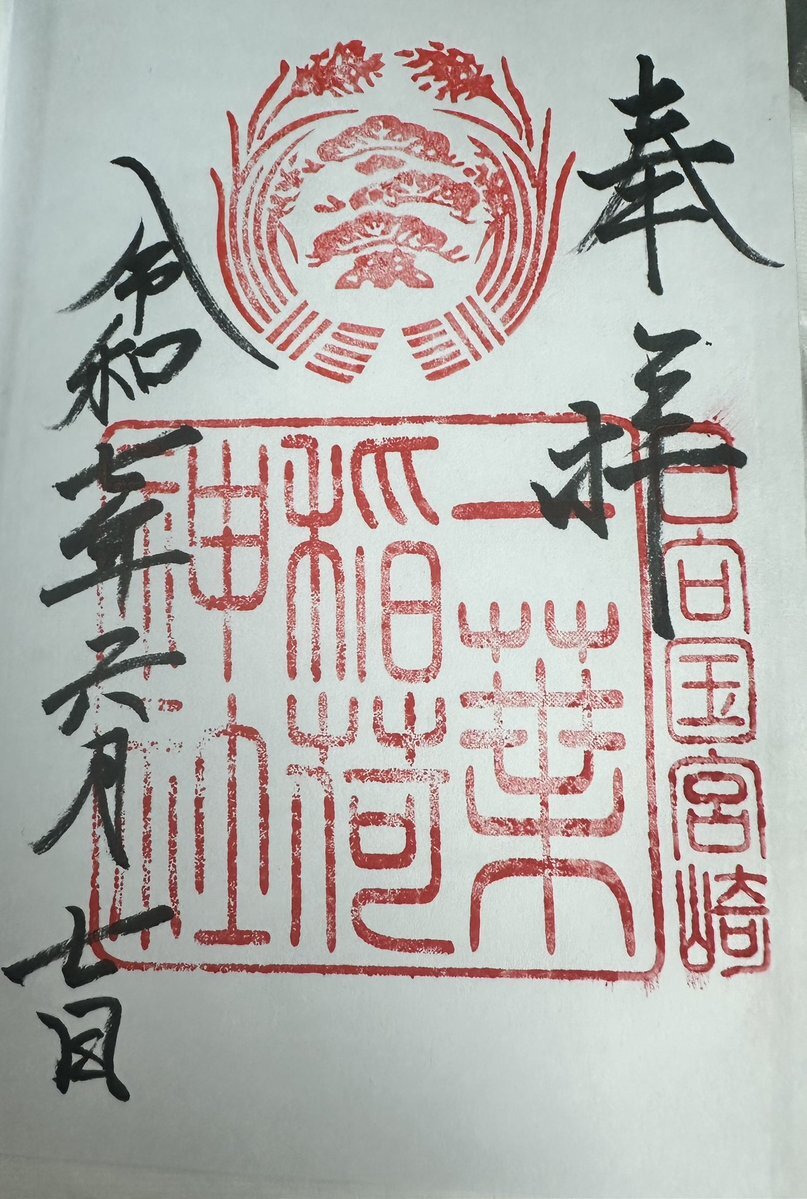 奉拝
日向国宮崎
一葉
稲荷
神社
令和七年六月七日